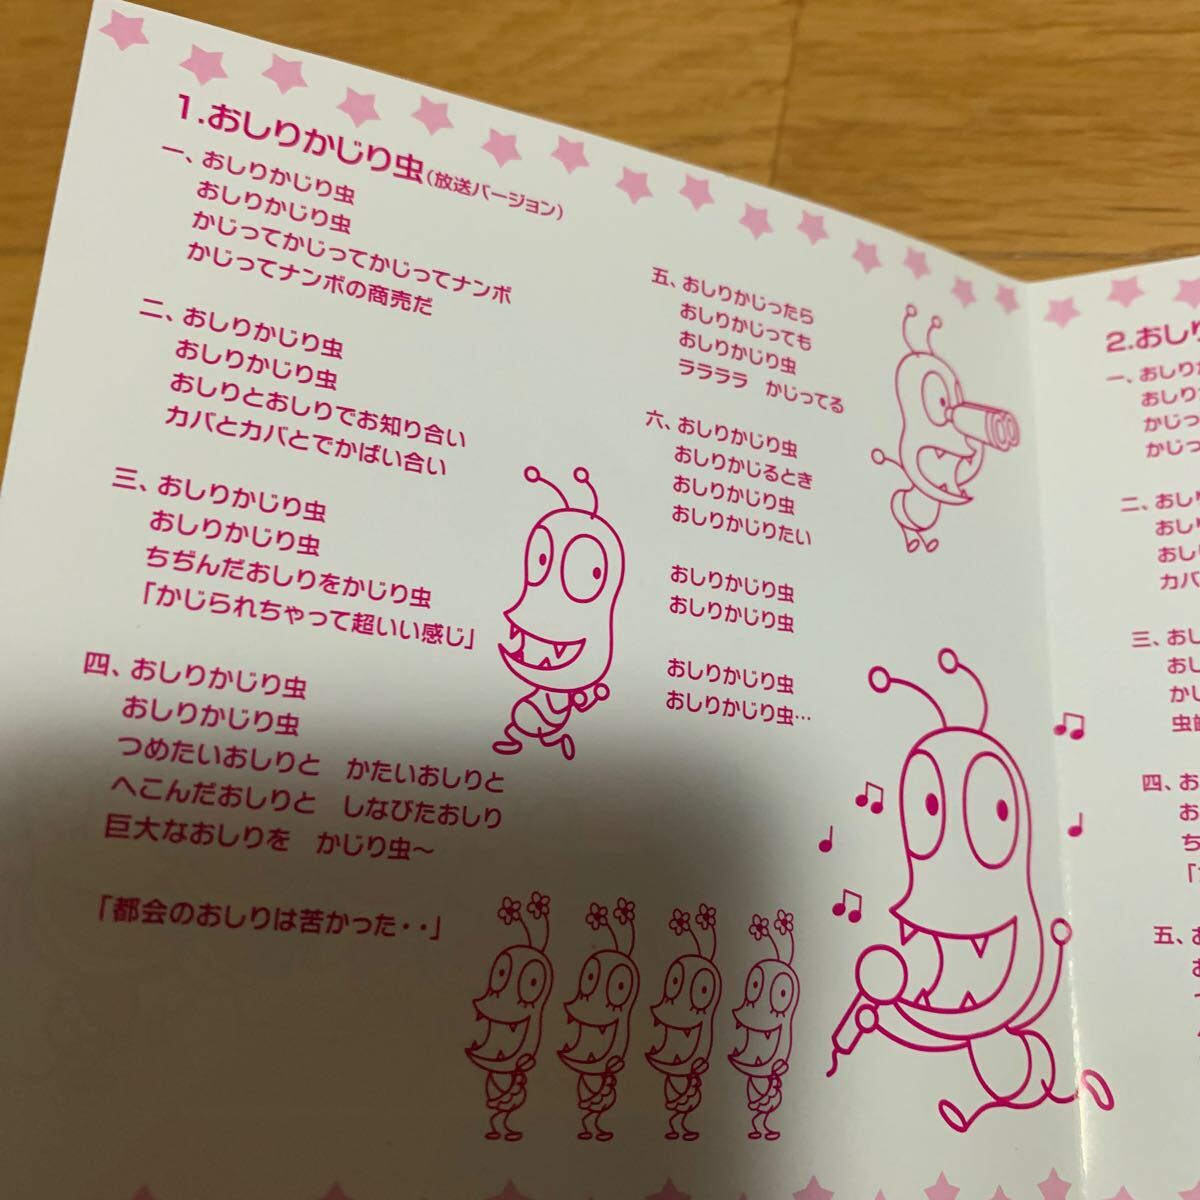 1.おしりかじり虫(放送バージョン)
一、おしりかじり虫
おしりかじり虫
かじってかじってかじってナンボ
かじってナンボの商売だ
二、おしりかじり虫
おしりかじり虫
おしりとおしりでお知り合い
カバとカバとでかばい合い
三、おしりかじり虫
おしりかじり虫
ちぢんだおしりをかじり虫
「かじられちゃって超いい感じ」
四、おしりかじり虫
おしりかじり虫
つめたいおしりと　かたいおしりと
へこんだおしりと　しなびたおしり
巨大なおしりを　かじり虫〜
「都会のおしりは苦かった・・」
五、おしりかじったら
おしりかじっても
おしりかじり虫
ララララ　かじってる
六、おしりかじり虫
おしりかじるとき
おしりかじり虫
おしりかじりたい
おしりかじり虫
おしりかじり虫
おしりかじり虫
おしりかじり虫…
2.おしり
一、おしりか
おしり
かじっ
かじっ
二、おしり
おしり
おしり
カバ
三、おし
おし
かし
虫歯
四、お
お
ち
「
五、お
お